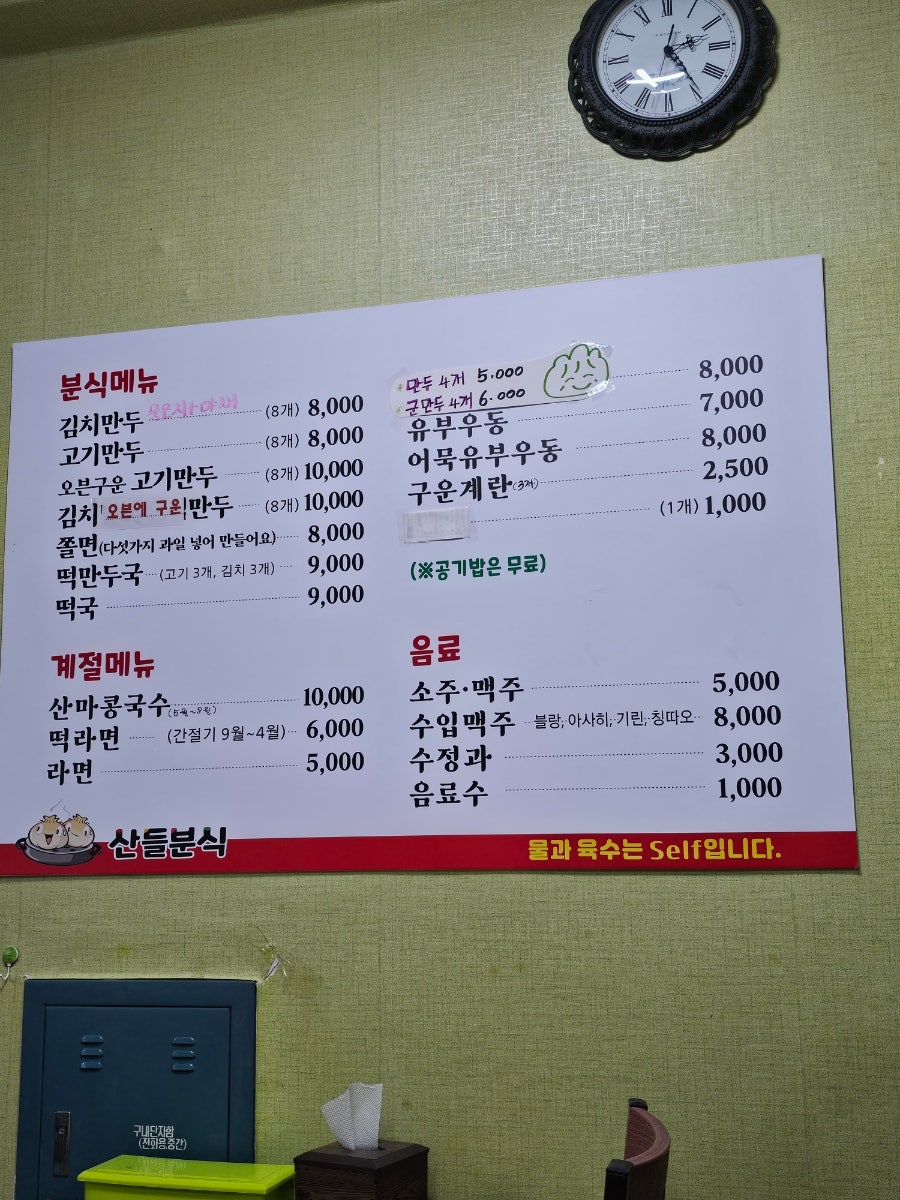 분식메뉴
김치만두 (8개) 8,000
고기만두 (8개) 8,000
오븐구운 고기만두 (8개) 10,000
김치 오븐에 구운 만두 (8개) 10,000
쫄면(다섯가지 과일 넣어 만들어요) 8,000
떡만두국 (고기 3개, 김치 3개) 9,000
떡국 9,000
계절메뉴
산마콩국수 10,000
떡라면 (간절기 9월~4월) 6,000
라면 5,000
만두 4개 5.000
군만두 4개 6.000
8,000
유부우동 7,000
어묵유부우동 8,000
구운계란(3개) 2,500
(1개) 1,000
(※공기밥은 무료)
음료
소주·맥주 5,000
수입맥주 블랑, 아사히, 기린, 칭따오 8,000
수정과 3,000
음료수 1,000
산들분식
물과 육수는 Self입니다.
구내단자함
(전화용,중간)